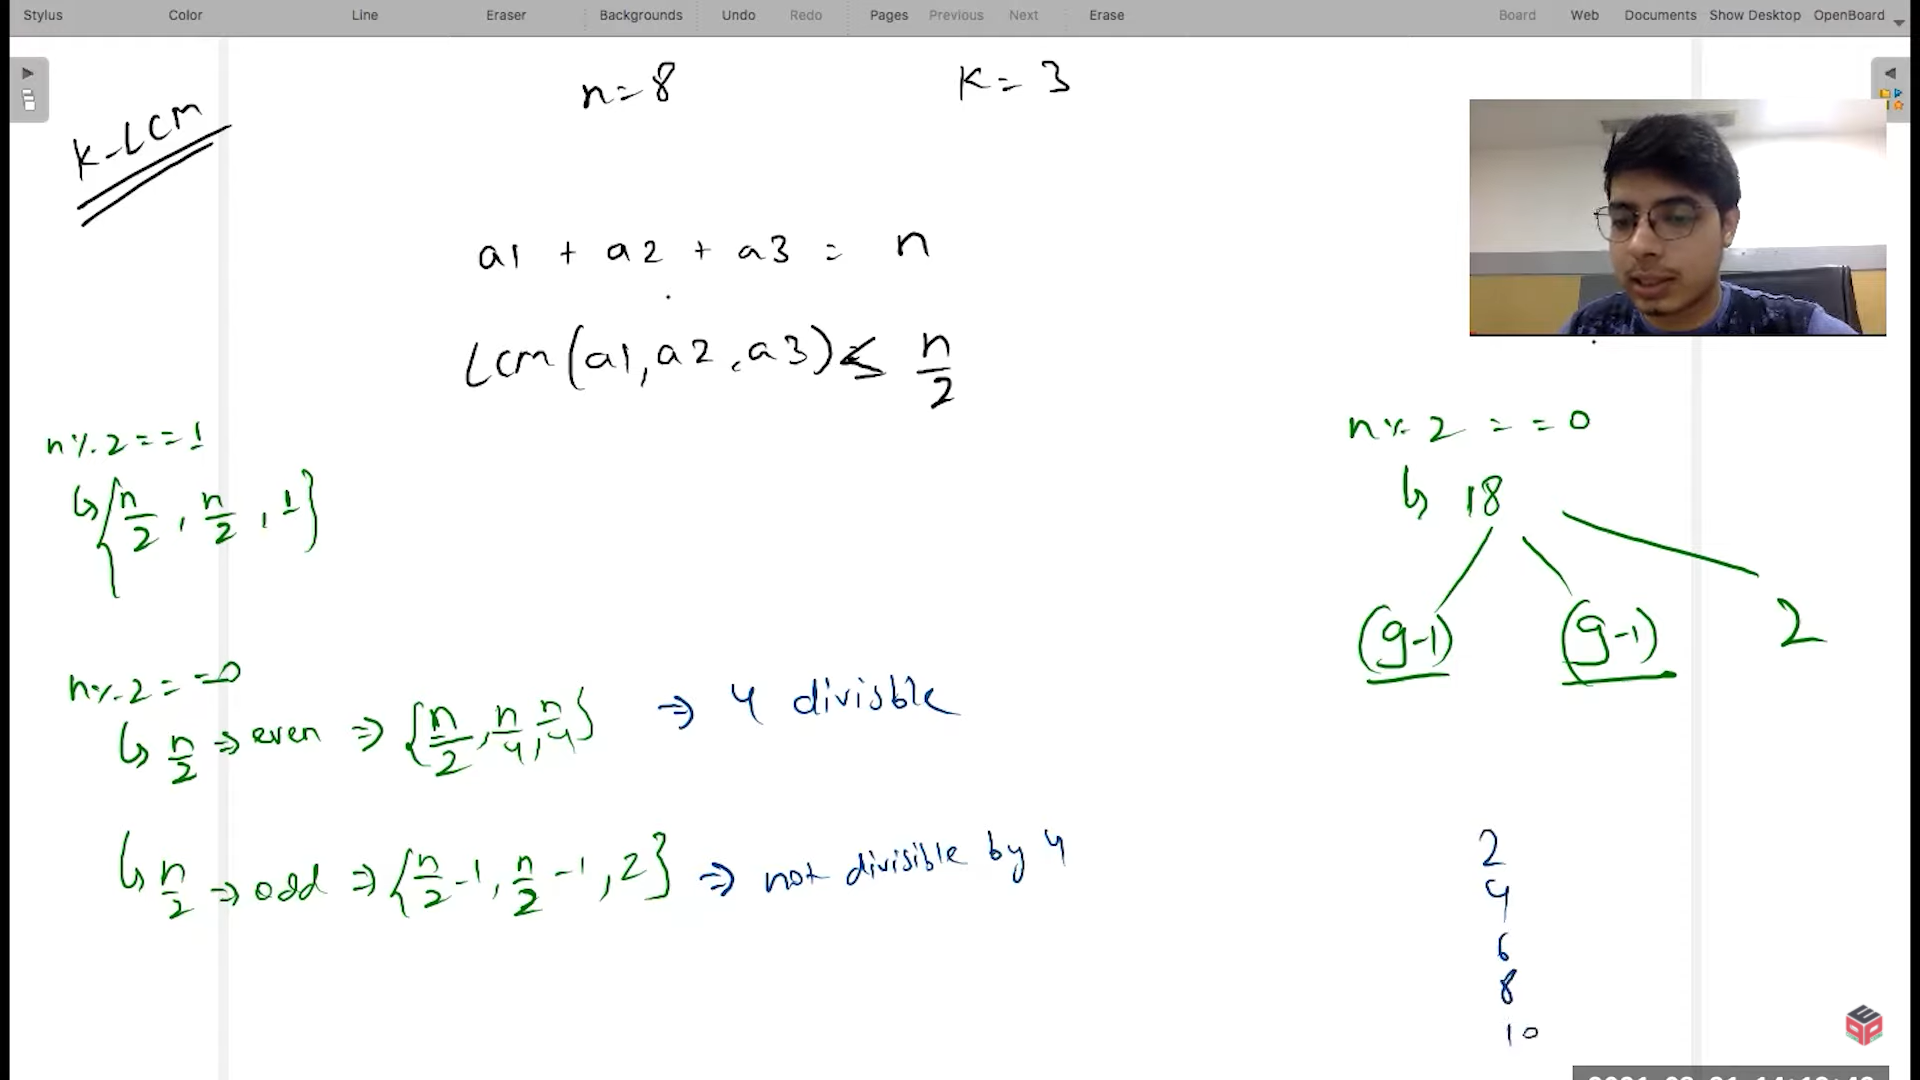 Stylus Color Line Eraser Backgrounds Undo Redo Pages Previous Next Erase Board Web Documents Show Desktop OpenBoard
n=8 K=3
K-LCM
a1 + a2 + a3 = n
LCM(a1,a2,a3) ≤ n/2
n%2==1
↳ {n/2, n/2, 1}
n%2==0
↳ 18
(9-1) (9-1) 2
n%2==0
↳ n/2 ⇒ even ⇒ {n/2, n/4, n/4} ⇒ 4 divisble
↳ n/2 ⇒ odd ⇒ {n/2-1, n/2-1, 2} ⇒ not divisible by 4
2
4
6
8
10